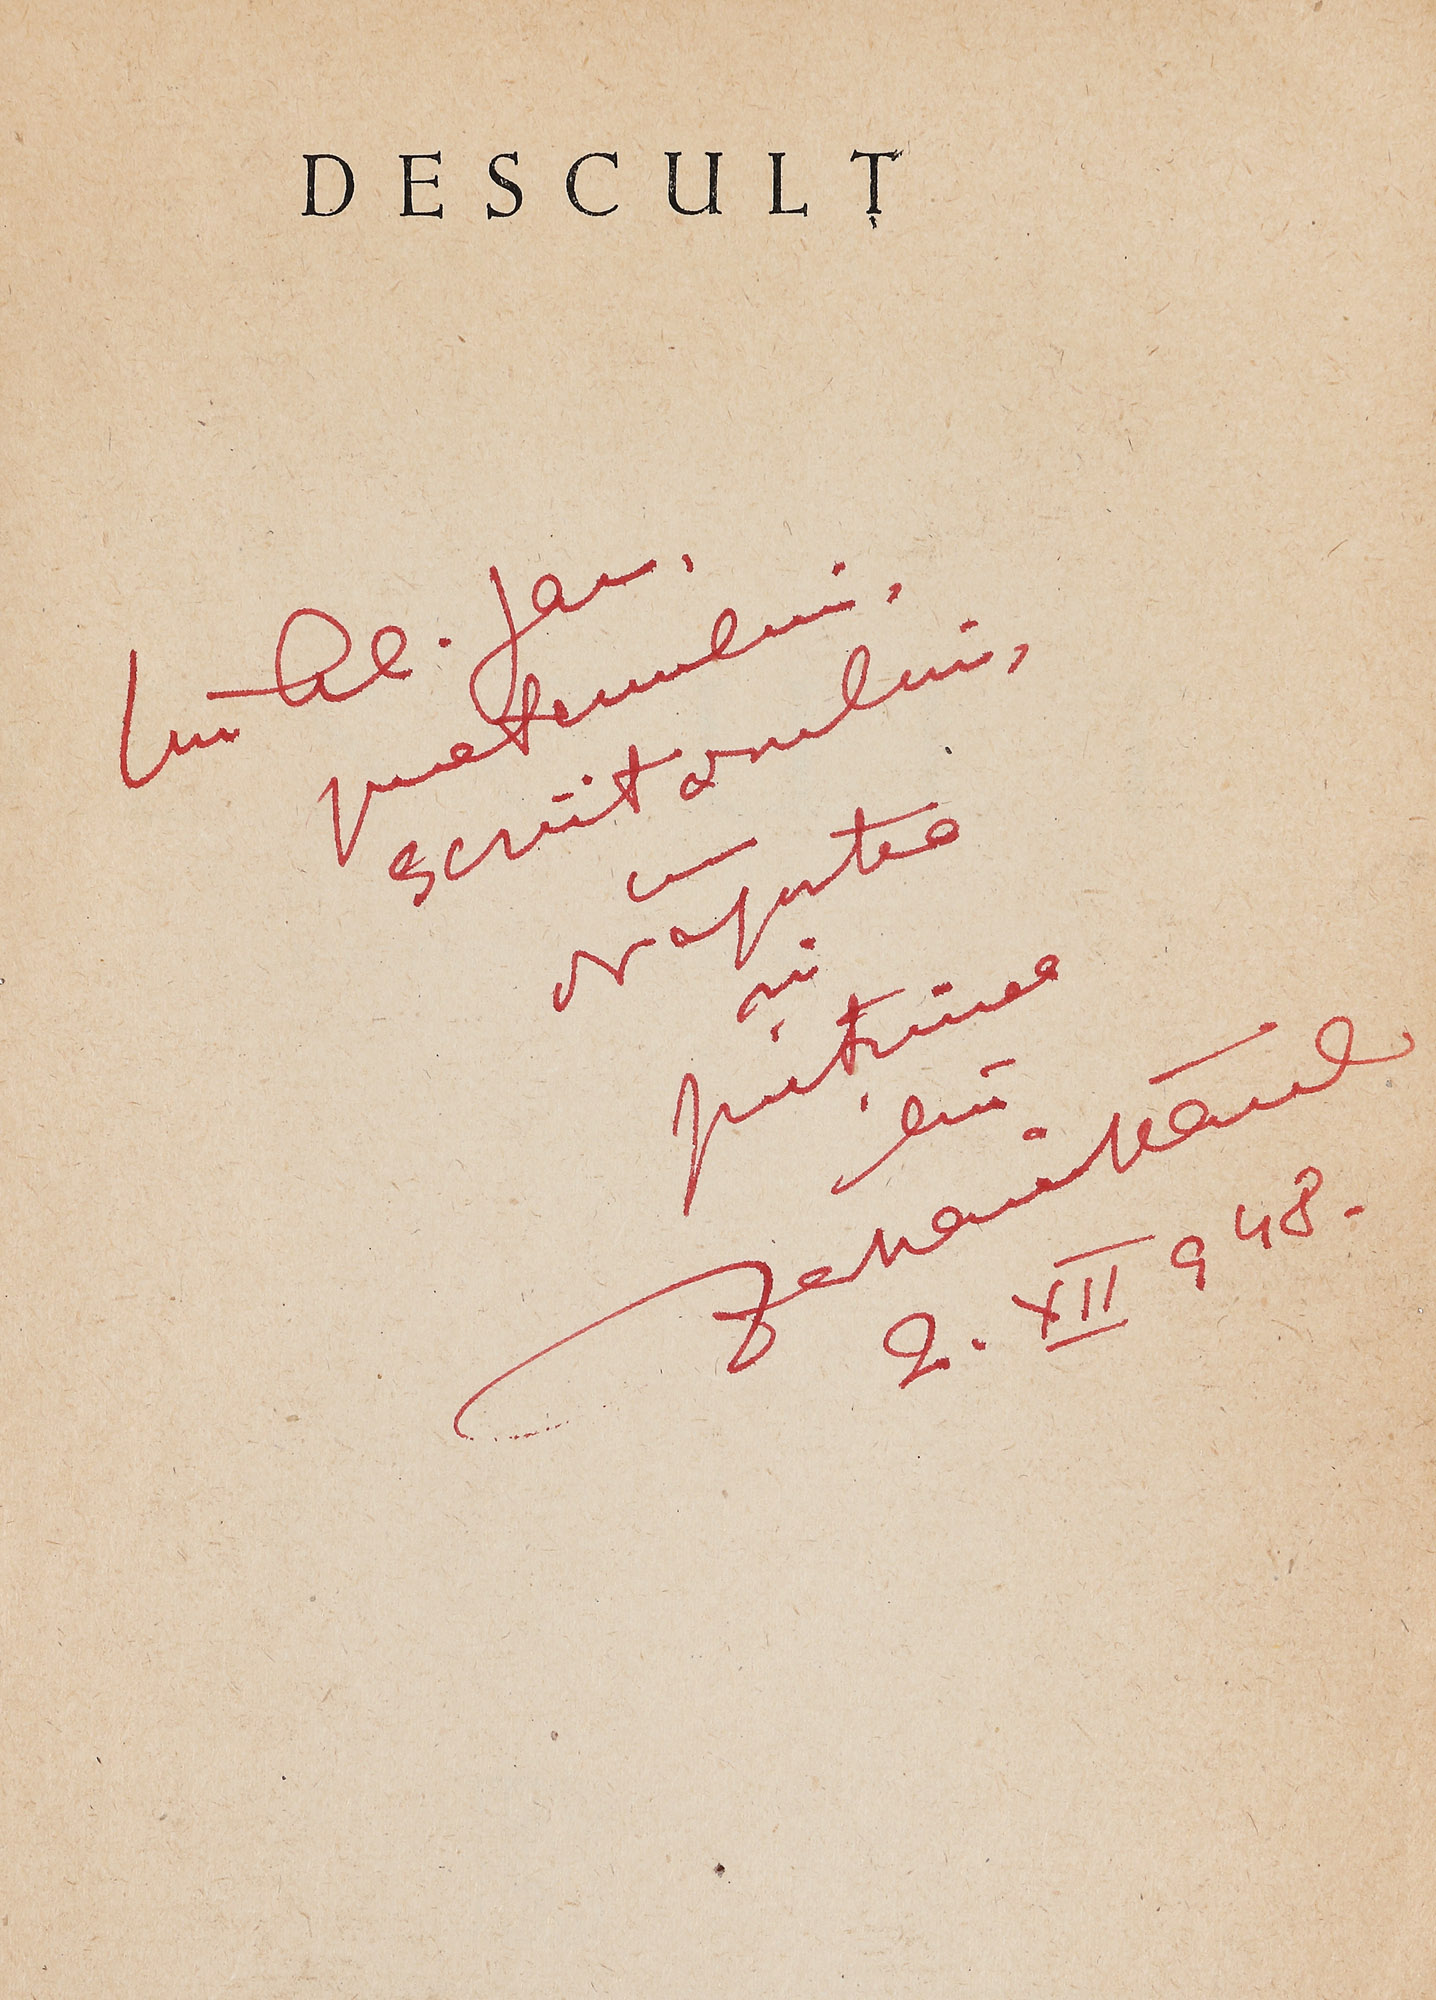 DESCULȚ
Lui Al. Jar,
prietenului,
scriitorului,
cu
dragostea
și
prețuirea
lui
Zaharia Stancu
2. XII 948.